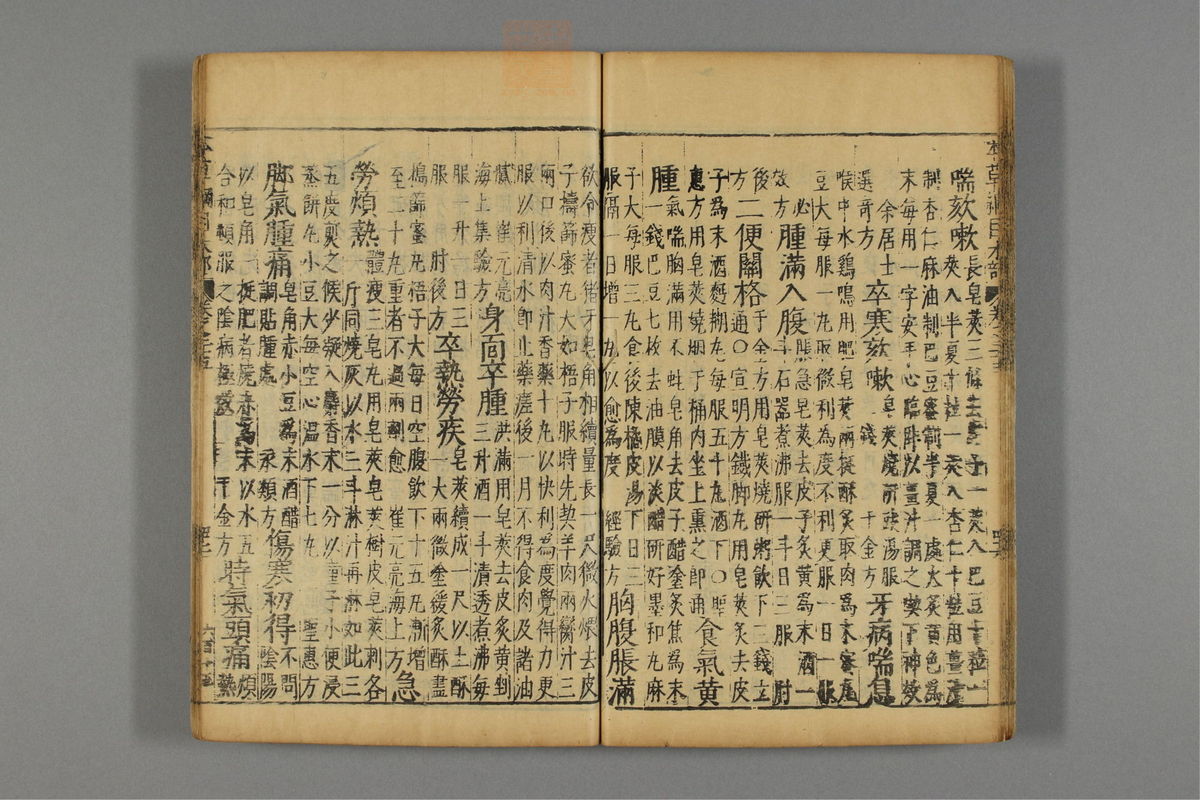 喘欬嗽長皂莢三條去皮子一莢入巴豆十粒一
莢入半夏十粒一莢入杏仁十粒用薑汁
制杏仁麻油制巴豆蜜制半夏一處火炙黄色為
末每用一字安手心臨卧以薑汁調之喫下神效
余居士選奇方
卒寒欬嗽皂莢燒研豉湯服
二錢千金方
牙病喘息
喉中水雞鳴用肥皂莢兩挺酥炙取肉為末蜜丸
豆大每服一丸取微利為度不利更服一日一服
必效方
腫滿入腹脹急皂莢去皮子炙黄為末酒一
斗石器煮沸服一斗日三服
肘後方
二便關格千金方用皂莢燒研粥飲下三錢立
通〇宣明方鐵脚丸用皂莢炙去皮
子為末酒麪糊丸每服五十丸酒下〇聖
惠方用皂莢燒烟于桶内坐上熏之即通
食氣黄
腫氣喘胸滿用不蛀皂角去皮子醋塗炙焦為末
一錢巴豆七枚去油膜以淡醋研好墨和丸麻
子大每服三丸食後陳橘皮湯下日三
服隔一日增一丸以愈為度
經驗方
胸腹脹滿
欲令瘦者猪牙皂角相續量長一尺微火煨去皮
子擣篩蜜丸大如梧子服時先喫羊肉兩臠汁三
兩口後以肉汁吞藥十丸以快利為度覺得力更
服以利清水即止藥瘥後一月不得食肉及諸油
膩崔元亮
海上集驗方
身面卒腫洪滿用皂莢去皮炙黄剉
三升酒一斗漬透煮沸每
服一升一日三
服肘後方
卒熱勞疾皂莢續成一尺以上酥
一大兩微塗緩炙酥盡
搗篩蜜丸梧子大每日空腹飲下十五丸漸增
至二十丸重者不過兩劑愈崔元亮海上方
急
勞煩熱體瘦三皂丸用皂莢皂莢樹皮皂莢刺各
一斤同燒灰以水三斗淋汁再淋如此三
五度煎之候少凝入麝香末一分以童子小便浸
蒸餅丸小豆大每空心温水下七丸聖惠方
脚氣腫痛皂角赤小豆為末酒醋
調貼腫處永類方
傷寒初得不問陰陽
以皂角一挺肥者燒赤為末以水五
合和頓服之陰病極效千金方
時氣頭痛煩熱